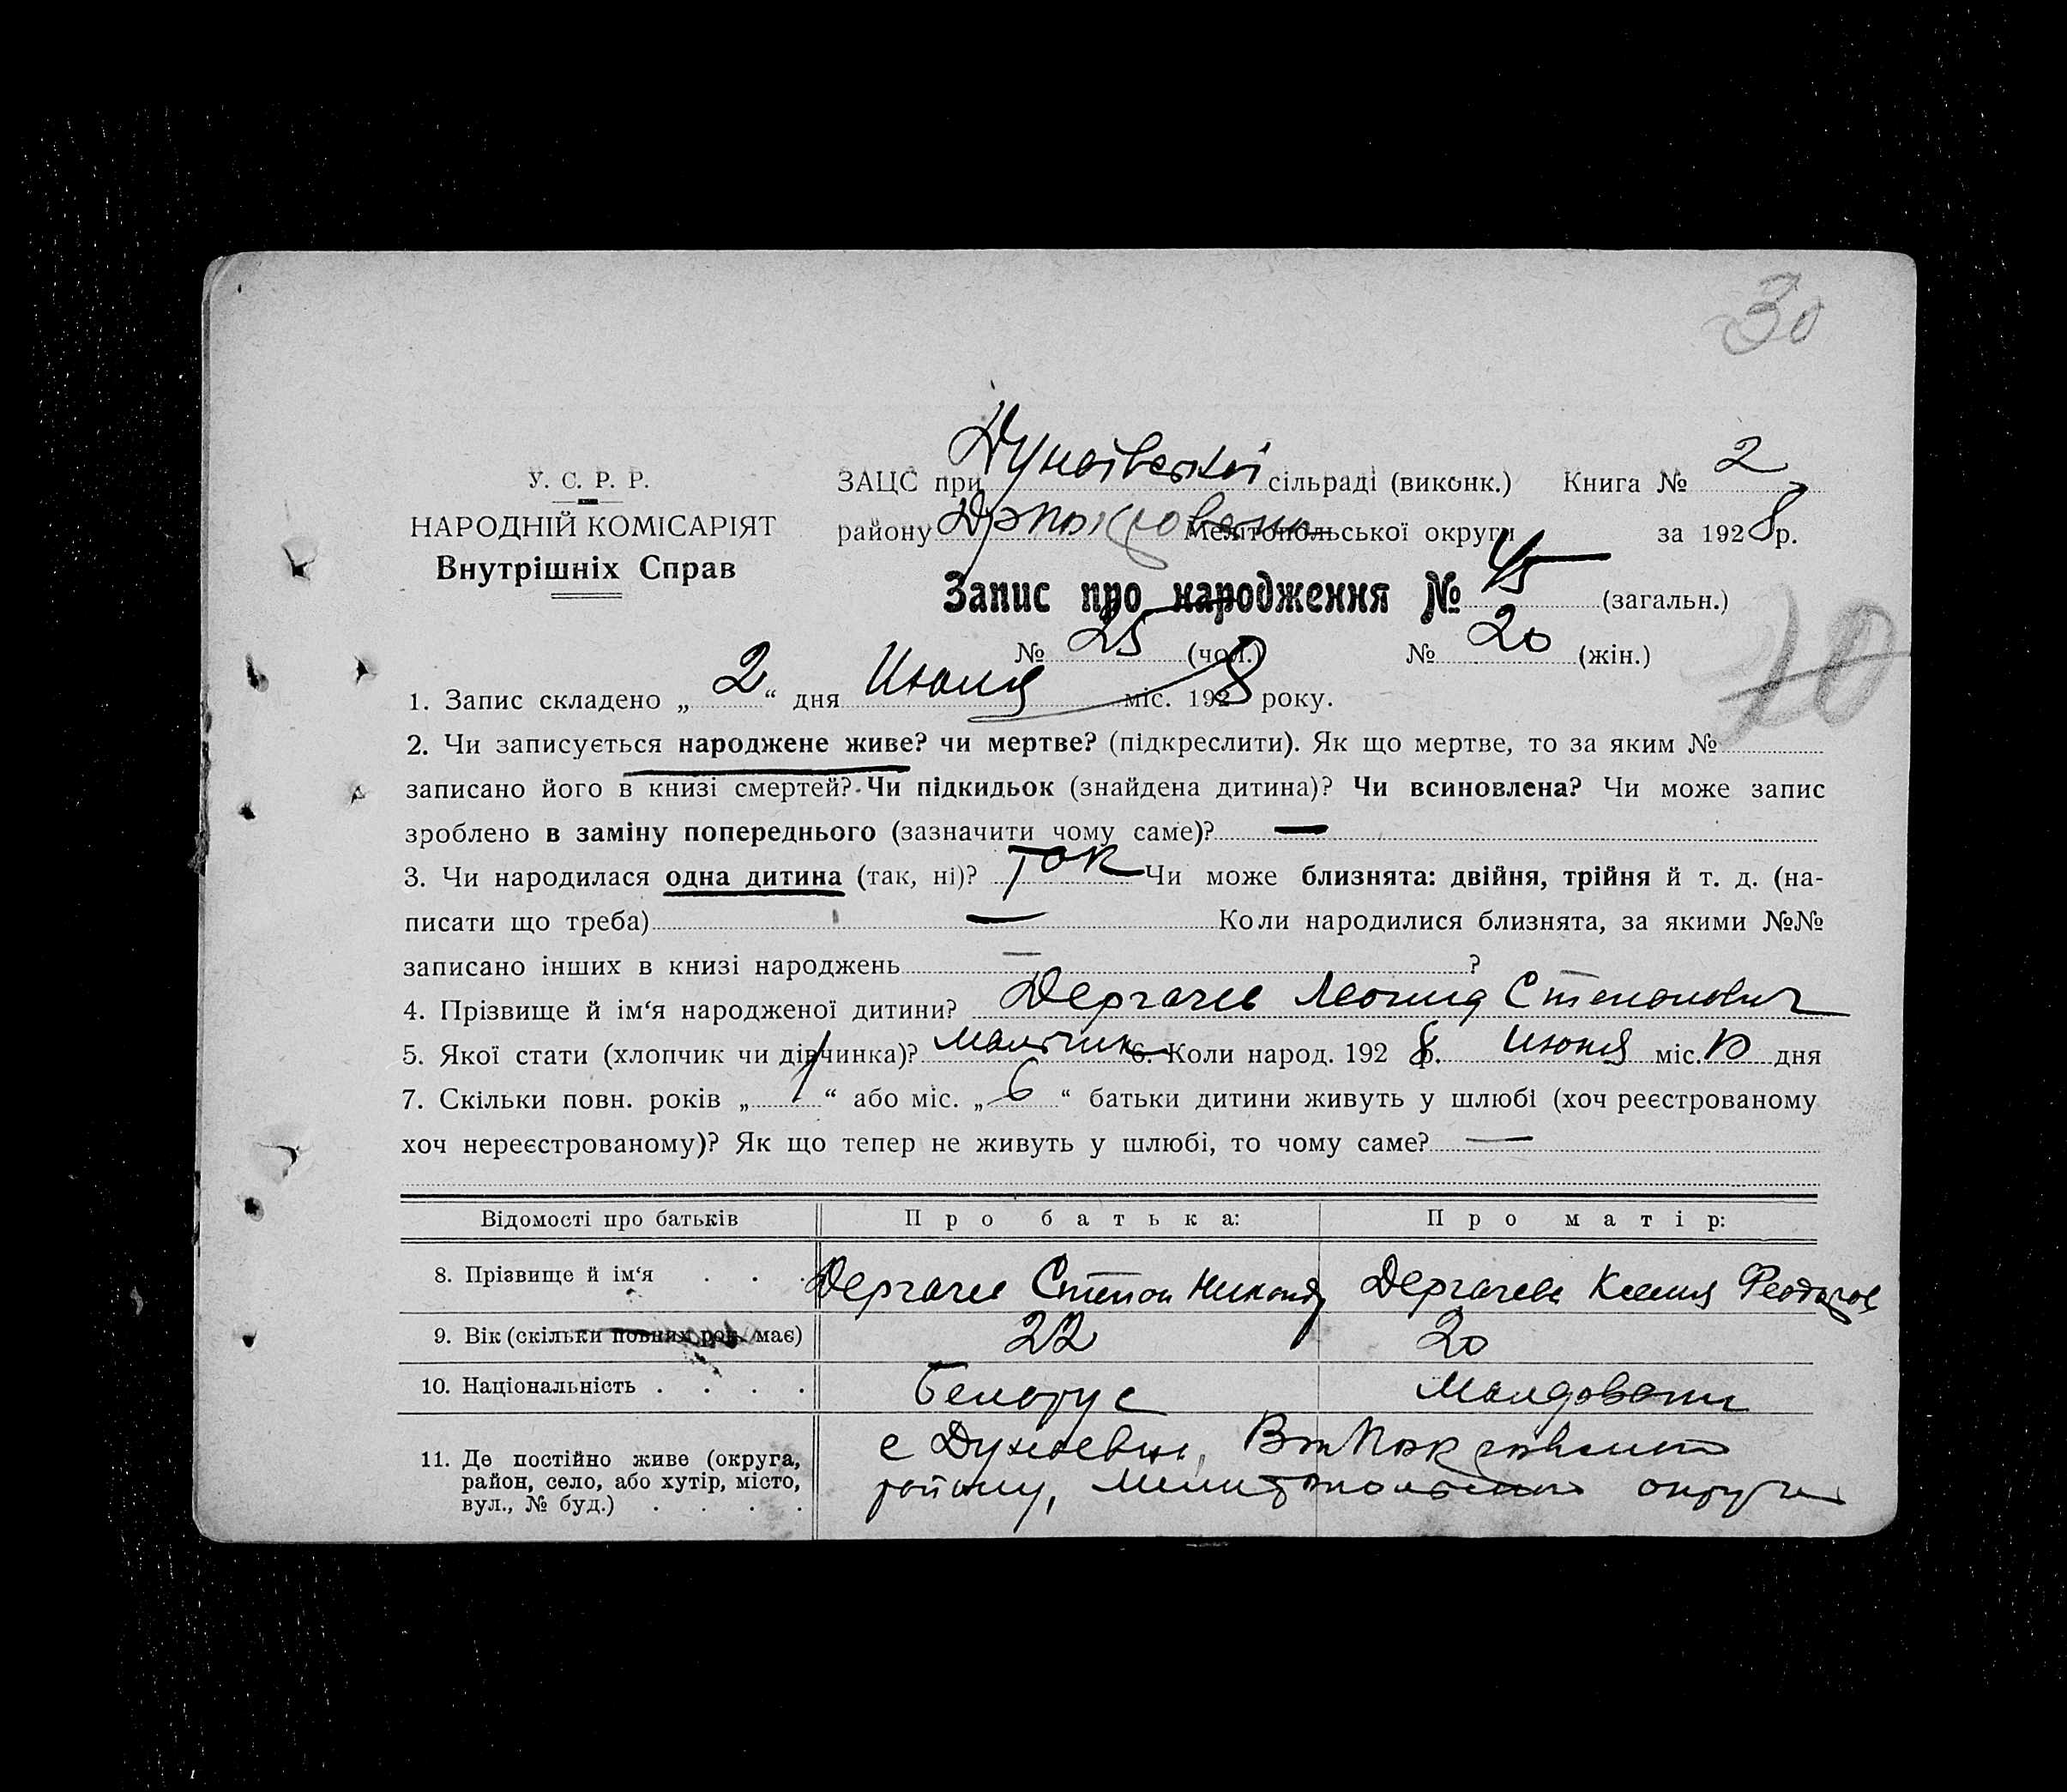 30
У. С. Р. Р.
НАРОДНІЙ КОМІСАРІЯТ
Внутрішніх Справ
ЗАЦС при Дунаївської сільраді (виконк.) Книга № 2
району Мелітопольської округи за 1928 р.
Запис про народження № 45 (загальн.)
№ 25 (чол.) № 20 (жін.)
10
1. Запис складено „ 2 “ дня Июля міс. 1928 року.
2. Чи записується народжене живе? чи мертве? (підкреслити). Як що мертве, то за яким №
записано його в книзі смертей? Чи підкидьок (знайдена дитина)? Чи всиновлена? Чи може запис
зроблено в заміну попереднього (зазначити чому саме)? —
3. Чи народилася одна дитина (так, ні)? так Чи може близнята: двійня, трійня й т. д. (на-
писати що треба) — Коли народилися близнята, за якими №№
записано інших в книзі народжень — ?
4. Прізвище й ім‘я народженої дитини? Дергачев Леонид Степанович
5. Якої стати (хлопчик чи дівчинка)? мальчик 6. Коли народ. 1928 р. Июня міс. 10 дня
7. Скільки повн. років „ 1 “ або міс. „ 6 “ батьки дитини живуть у шлюбі (хоч реєстрованому
хоч нереєстрованому)? Як що тепер не живуть у шлюбі, то чому саме? —
Відомості про батьків Про батька: Про матір:
8. Прізвище й ім‘я . . . Дергачев Степан Дергачева Ксения
9. Вік (скільки повних рок. має) 22 20
10. Національність . . . . Белорус Молдован
11. Де постійно живе (округа,
район, село, або хутір, місто,
вул., № буд.) . . . .
с Дунаевка,
району, Мелитопольского округа